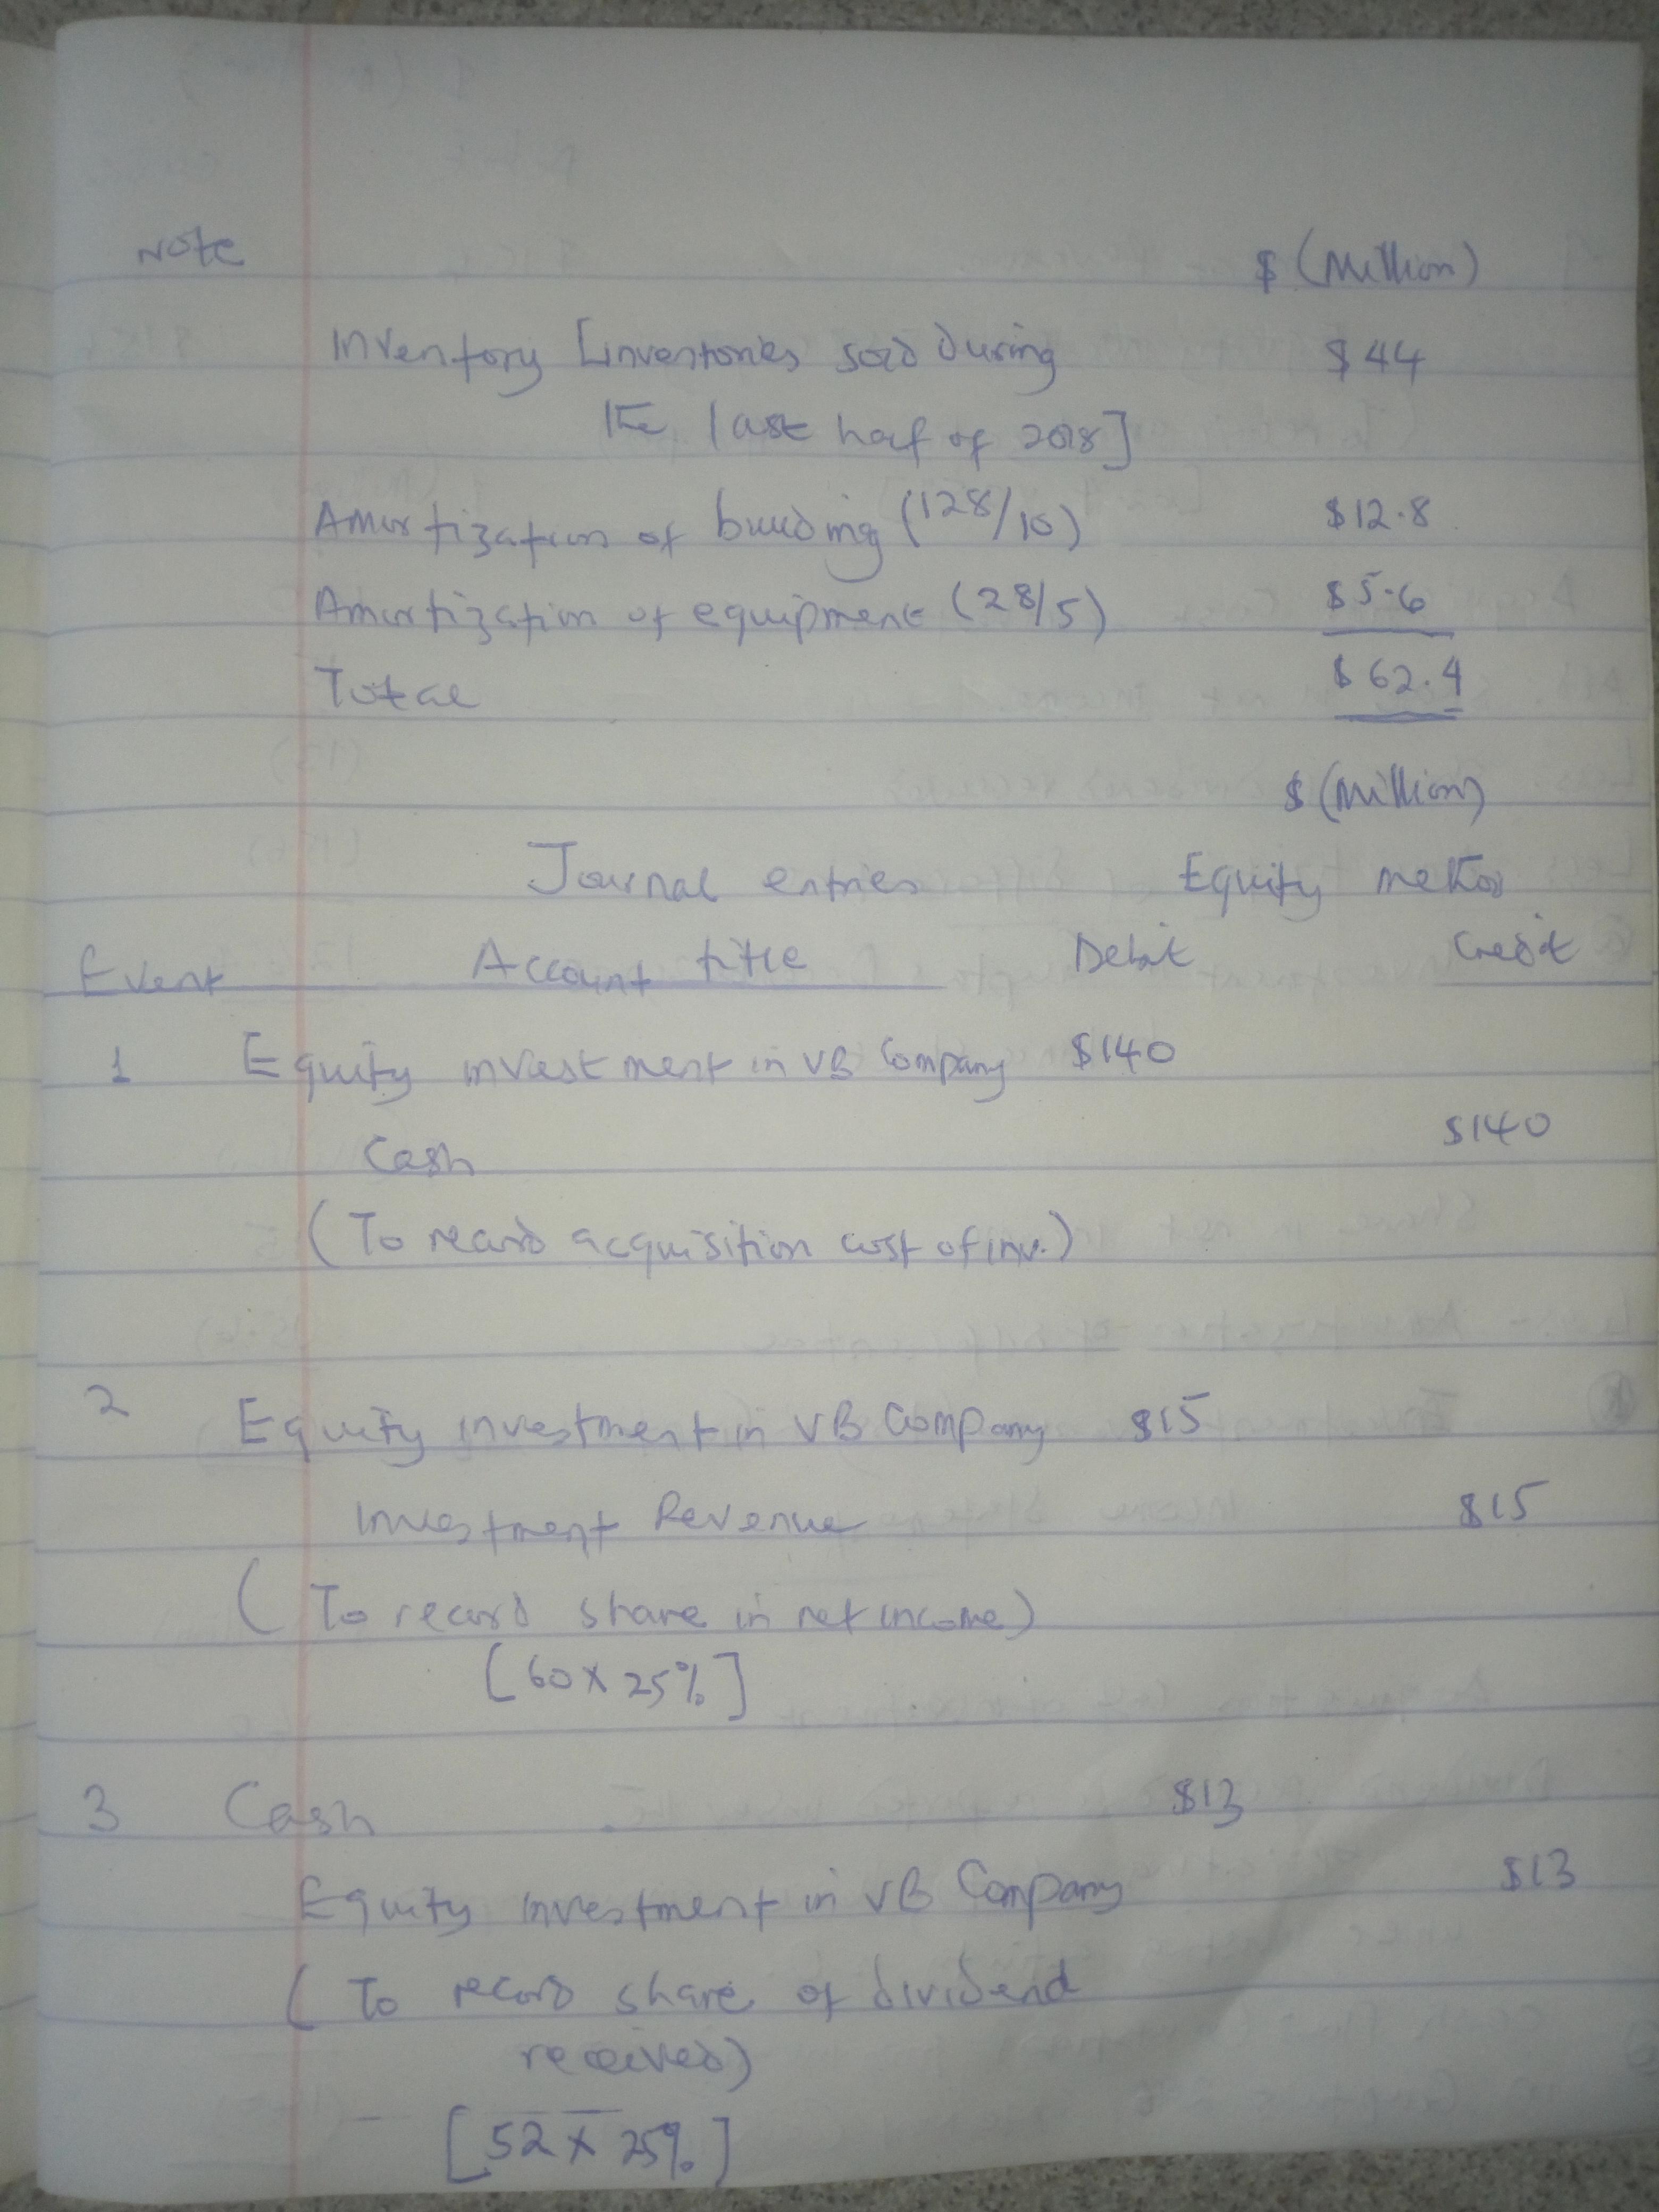 Note
$ (Million)
Inventory [inventories sold during $44
the last half of 2018]
Amortization of building (128/10) $12.8
Amortization of equipment (28/5) $5.6
Total $62.4
$ (Million)
Journal entries Equity method
Event Account title Debit Credit
1 Equity investment in VB Company $140
Cash $140
(To record acquisition cost of inv.)
2 Equity investment in VB Company $15
Investment Revenue $15
(To record share in net income)
[60 x 25%]
3 Cash $13
Equity investment in VB Company $13
(To record share of dividend
received)
[52 x 25%]